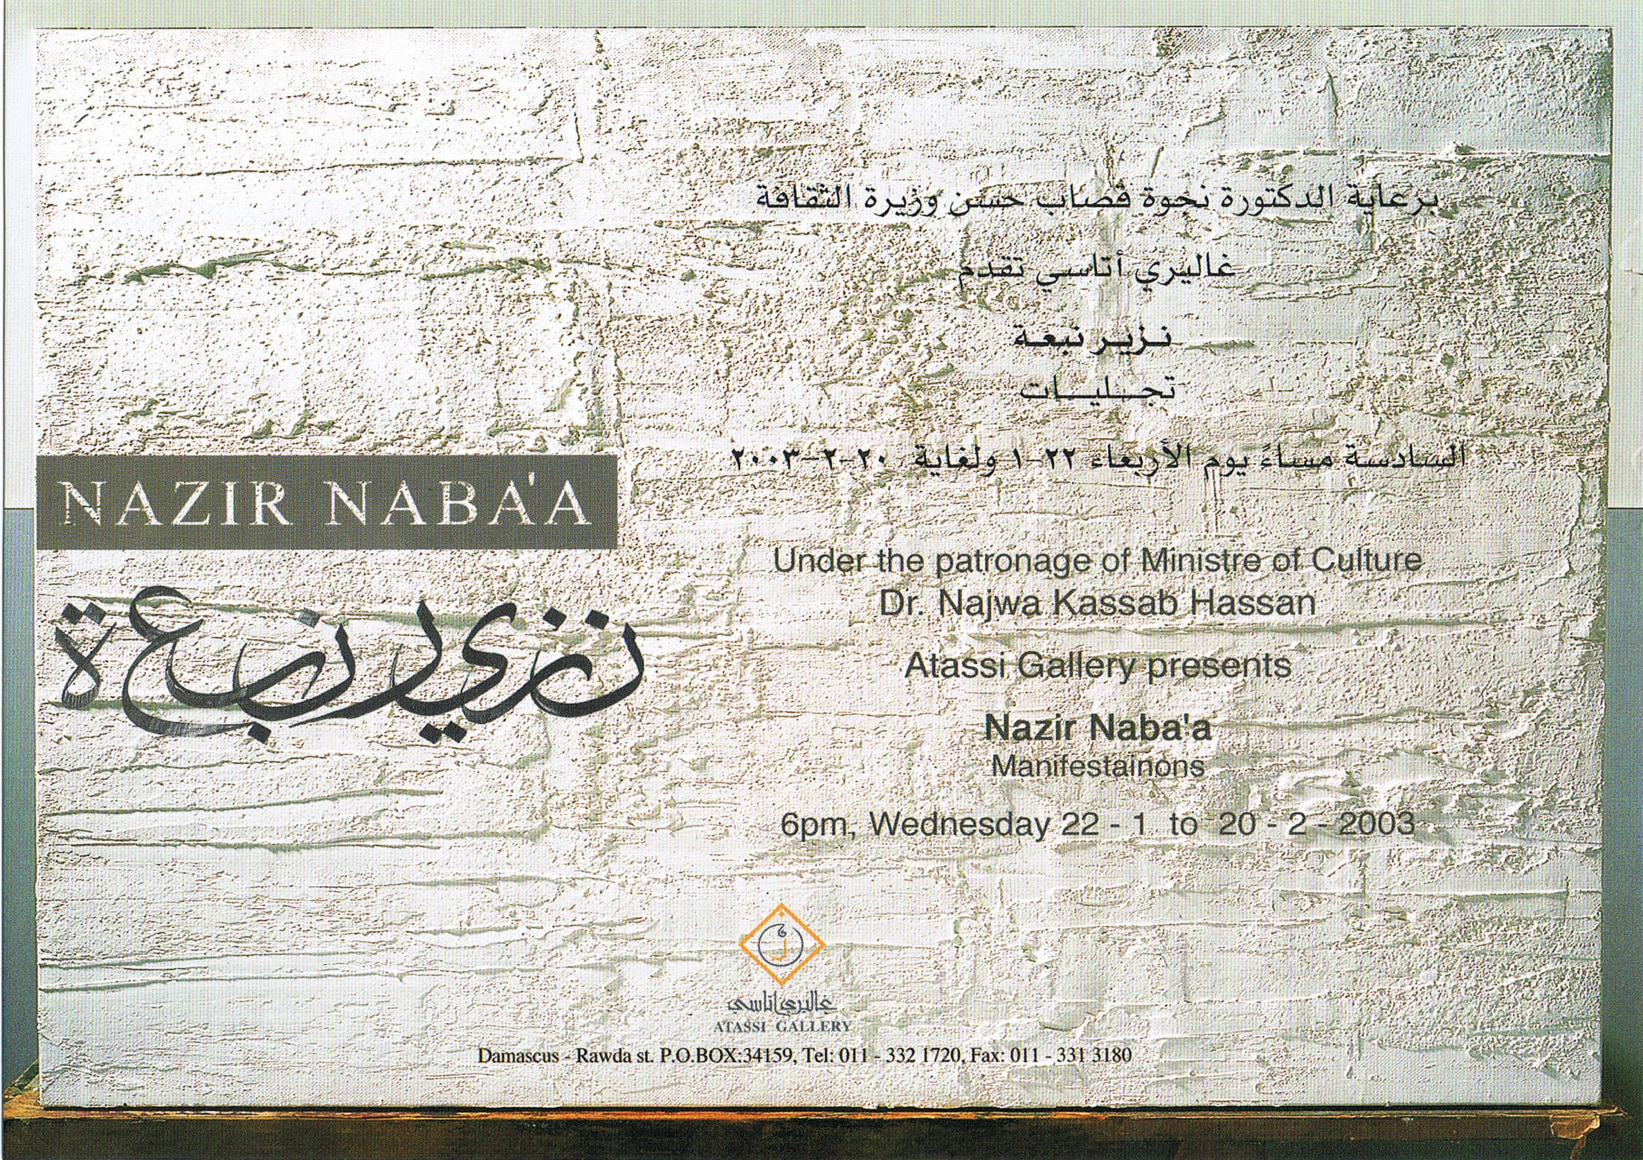 برعاية الدكتورة نجوة قصاب حسن وزيرة الثقافة
غاليري أتاسي تقدم
نـزيـر نبعـة
تجـــليـــات
السادسة مساءً يوم الأربعاء ٢٢-١ ولغاية ٢٠-٢-٢٠٠٣
NAZIR NABA'A
نزير نبعة
Under the patronage of Ministre of Culture
Dr. Najwa Kassab Hassan
Atassi Gallery presents
Nazir Naba'a
Manifestainons
6pm, Wednesday 22 - 1 to 20 - 2 - 2003
غاليري اتاسي
ATASSI GALLERY
Damascus - Rawda st. P.O.BOX:34159, Tel: 011 - 332 1720, Fax: 011 - 331 3180